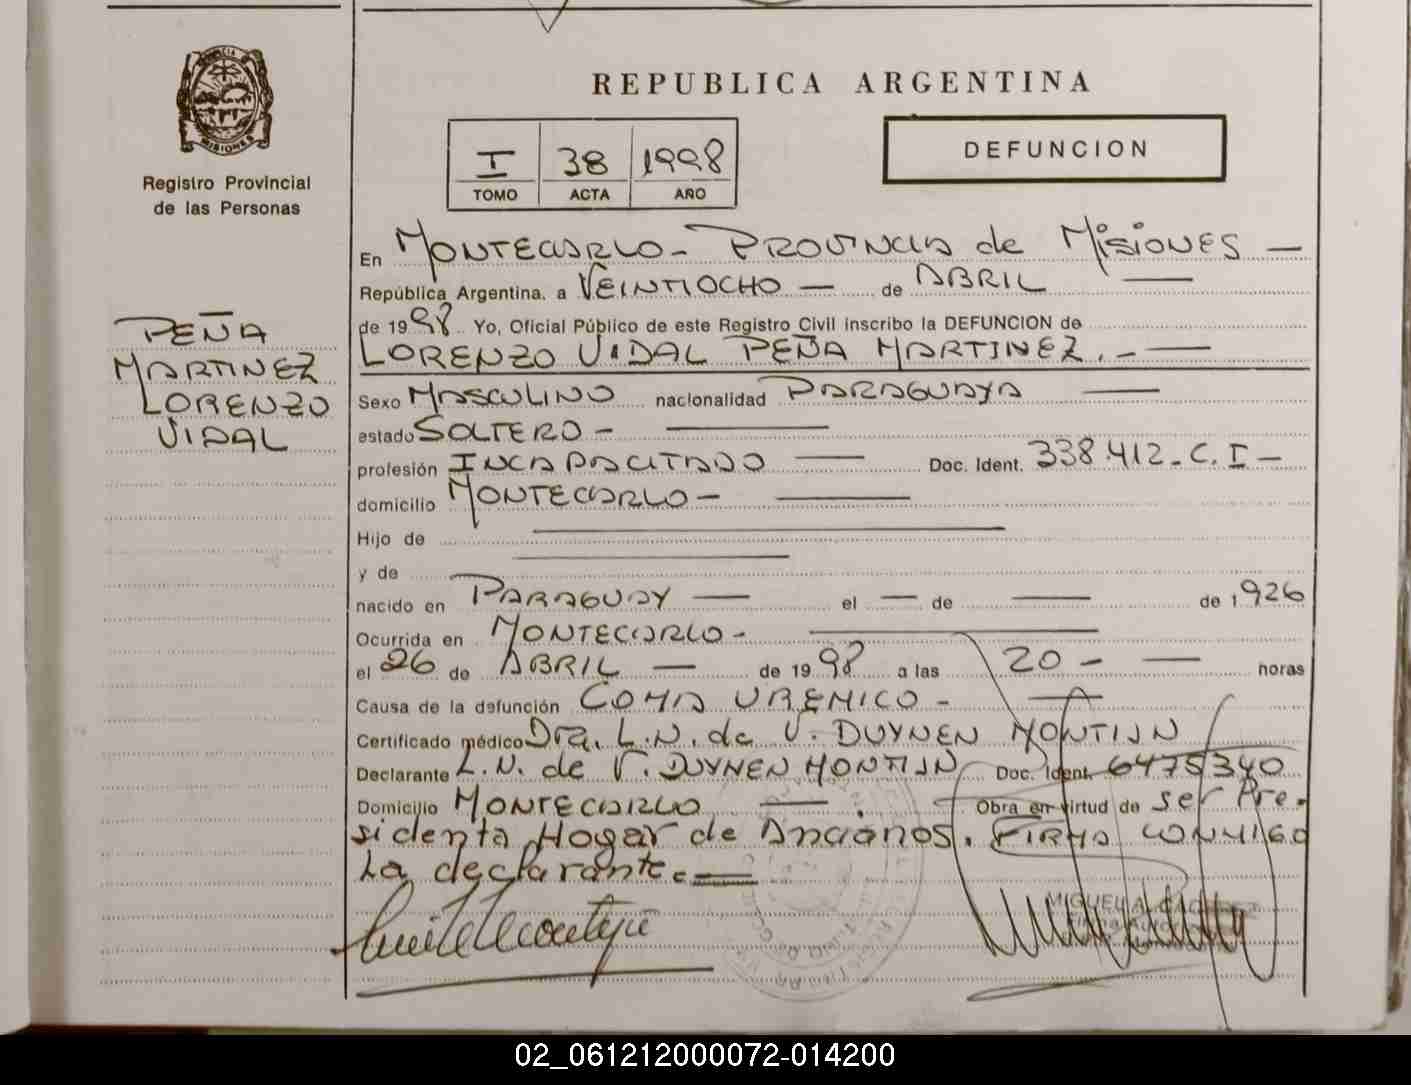 PROVINCIA DE
MISIONES
Registro Provincial
de las Personas
PEÑA
MARTINEZ
LORENZO
VIDAL
REPUBLICA ARGENTINA
I 38 1998
TOMO ACTA AÑO
DEFUNCION
En MONTECARLO- PROVINCIA de MISIONES —
República Argentina. a VEINTIOCHO — de ABRIL —
de 1998 Yo, Oficial Público de este Registro Civil inscribo la DEFUNCION de
LORENZO VIDAL PEÑA MARTINEZ.-—
Sexo MASCULINO nacionalidad PARAGUAYA —
estado SOLTERO- —
profesión INCAPACITADO — Doc. Ident. 338.412-C.I-
domicilio MONTECARLO- —
Hijo de —
y de —
nacido en PARAGUAY — el — de — de 1926
Ocurrida en MONTECARLO- —
el 26 de ABRIL — de 1998 a las 20- — horas
Causa de la defunción COMA UREMICO- —
Certificado médico Dra. L.N. de V. DUYNEN MONTIJN
Declarante L.N. de V. DUYNEN MONTIJN Doc. Ident. 6475340
Domicilio MONTECARLO — Obra en virtud de ser Pre-
sidenta Hogar de Ancianos. FIRMA CONMIGO
La declarante.=
MIGUEL A.
02_061212000072-014200